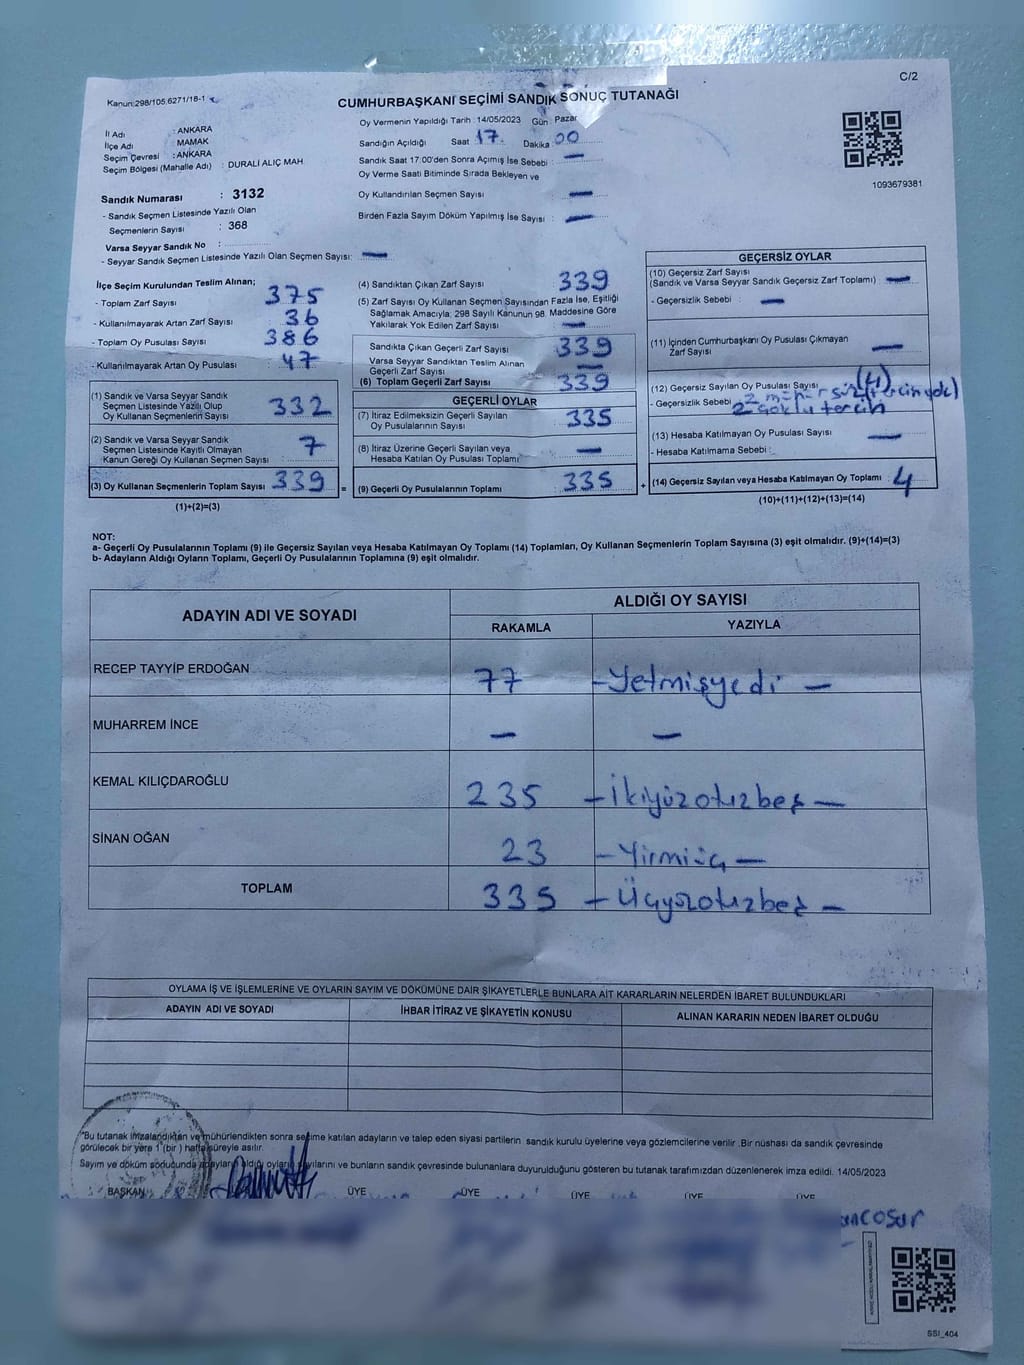 C/2
Kanun:298/105.6271/18-1
CUMHURBAŞKANI SEÇİMİ SANDIK SONUÇ TUTANAĞI
İl Adı : ANKARA
İlçe Adı : MAMAK
Seçim Çevresi : ANKARA
Seçim Bölgesi (Mahalle Adı) : DURALİ ALIÇ MAH.
Sandık Numarası : 3132
- Sandık Seçmen Listesinde Yazılı Olan
Seçmenlerin Sayısı : 368
Varsa Seyyar Sandık No :
- Seyyar Sandık Seçmen Listesinde Yazılı Olan Seçmen Sayısı: —
Oy Vermenin Yapıldığı Tarih : 14/05/2023 Gün : Pazar
Sandığın Açıldığı Saat 17 Dakika 00
Sandık Saat 17:00'den Sonra Açımış İse Sebebi : —
Oy Verme Saati Bitiminde Sırada Bekleyen ve
Oy Kullandırılan Seçmen Sayısı —
Birden Fazla Sayım Döküm Yapılmış İse Sayısı : —
1093679381
İlçe Seçim Kurulundan Teslim Alınan;
- Toplam Zarf Sayısı 375
- Kullanılmayarak Artan Zarf Sayısı 36
- Toplam Oy Pusulası Sayısı 386
- Kullanılmayarak Artan Oy Pusulası : 47
(1) Sandık ve Varsa Seyyar Sandık
Seçmen Listesinde Yazılı Olup
Oy Kullanan Seçmenlerin Sayısı : 332
(2) Sandık ve Varsa Seyyar Sandık
Seçmen Listesinde Kayıtlı Olmayan
Kanun Gereği Oy Kullanan Seçmen Sayısı : 7
(3) Oy Kullanan Seçmenlerin Toplam Sayısı 339 =
(1)+(2)=(3)
(4) Sandıktan Çıkan Zarf Sayısı 339
(5) Zarf Sayısı Oy Kullanan Seçmen Sayısından Fazla İse, Eşitliği
Sağlamak Amacıyla, 298 Sayılı Kanunun 98. Maddesine Göre
Yakılarak Yok Edilen Zarf Sayısı : —
Sandıkta Çıkan Geçerli Zarf Sayısı 339
Varsa Seyyar Sandıktan Teslim Alınan
Geçerli Zarf Sayısı —
(6) Toplam Geçerli Zarf Sayısı 339
GEÇERLİ OYLAR
(7) İtiraz Edilmeksizin Geçerli Sayılan
Oy Pusulalarının Sayısı 335
(8) İtiraz Üzerine Geçerli Sayılan veya
Hesaba Katılan Oy Pusulası Toplamı —
(9) Geçerli Oy Pusulalarının Toplamı 335 +
GEÇERSİZ OYLAR
(10) Geçersiz Zarf Sayısı
(Sandık ve Varsa Seyyar Sandık Geçersiz Zarf Toplamı) : —
- Geçersizlik Sebebi : —
(11) İçinden Cumhurbaşkanı Oy Pusulası Çıkmayan
Zarf Sayısı : —
(12) Geçersiz Sayılan Oy Pusulası Sayısı (4)
- Geçersizlik Sebebi 2 mühürsüz (tercih yok)
2 çoklu tercih
(13) Hesaba Katılmayan Oy Pusulası Sayısı : —
- Hesaba Katılmama Sebebi :
(14) Geçersiz Sayılan veya Hesaba Katılmayan Oy Toplamı : 4
(10)+(11)+(12)+(13)=(14)
NOT:
a- Geçerli Oy Pusulalarının Toplamı (9) ile Geçersiz Sayılan veya Hesaba Katılmayan Oy Toplamı (14) Toplamları, Oy Kullanan Seçmenlerin Toplam Sayısına (3) eşit olmalıdır. (9)+(14)=(3)
b- Adayların Aldığı Oyların Toplamı, Geçerli Oy Pusulalarının Toplamına (9) eşit olmalıdır.
ADAYIN ADI VE SOYADI ALDIĞI OY SAYISI
RAKAMLA YAZIYLA
RECEP TAYYİP ERDOĞAN 77 —Yetmişyedi —
MUHARREM İNCE — —
KEMAL KILIÇDAROĞLU 235 —İkiyüzotuzbeş —
SİNAN OĞAN 23 —Yirmiüç —
TOPLAM 335 — Üçyüzotuzbeş —
OYLAMA İŞ VE İŞLEMLERİNE VE OYLARIN SAYIM VE DÖKÜMÜNE DAİR ŞİKAYETLERLE BUNLARA AİT KARARLARIN NELERDEN İBARET BULUNDUKLARI
ADAYIN ADI VE SOYADI İHBAR İTİRAZ VE ŞİKAYETİN KONUSU ALINAN KARARIN NEDEN İBARET OLDUĞU
"Bu tutanak imzalandıktan ve mühürlendikten sonra seçime katılan adayların ve talep eden siyasi partilerin sandık kurulu üyelerine veya gözlemcilerine verilir .Bir nüshası da sandık çevresinde
görülecek bir yere 1 (bir) hafta süreyle asılır.
Sayım ve döküm sonucunda adayların aldığı oyların sayılarını ve bunların sandık çevresinde bulunanlara duyurulduğunu gösteren bu tutanak tarafımızdan düzenlenerek imza edildi. 14/05/2023
BAŞKAN ÜYE ÜYE ÜYE ÜYE ÜYE
SSI_404